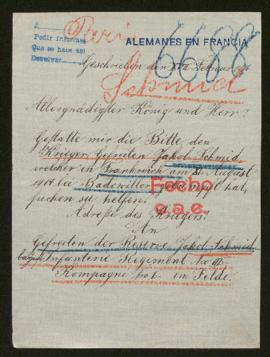 A
Pedir Informes
Que se hace así
Devolver
Paris
ALEMANES EN FRANCIA
6688
Geschrieben den
Schmid
Allergnädigster König und Herr!
Gestatte mir die Bitte den
Krieger Gefreiten Jakob Schmid
welcher in Frankreich am August
bei Badonviller hat,
suchen zu helfen.
Fecho
Adresse des Kriegers
g.a.e.
An
Gefreiten der Reserve Jakob Schmid
bayr. Infanterie Regiment No
Kompagnie im Felde.